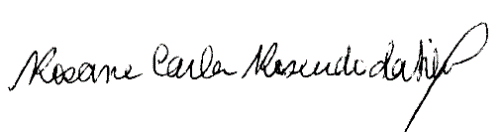 Rosane Carla Resende da Silva